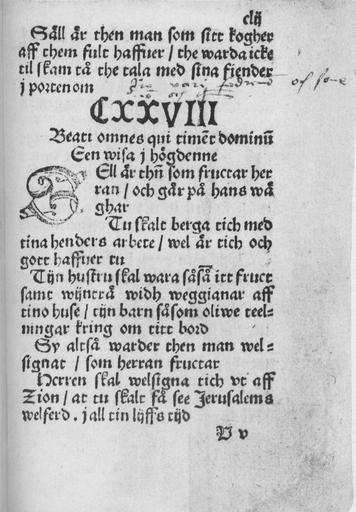 clij
Säll är then man som sitt kogher
aff them fult haffuer / the warda icke
til skam tå the tala med sina fiender
j porten om
CXXVIII
Beati omnes qui timēt dominū
Een wisa j högdenne
Sell är thn̄ som fructar her
ran / och går på hans wä
ghar
Tu skalt berga tich med
tina henders arbete / wel är tich och
gott haffuer tu
Tijn hustru skal wara såsā itt fruct
samt wijnträ widh weggianar aff
tino huse / tijn barn såsom oliwe teel-
ningar kring om titt bord
Sy altså warder then man wel-
signat / som herran fructar
Herren skal welsigna tich vt aff
Zion / at tu skalt få see Jerusalems
welferd . j all tin lijffs tijd
V v